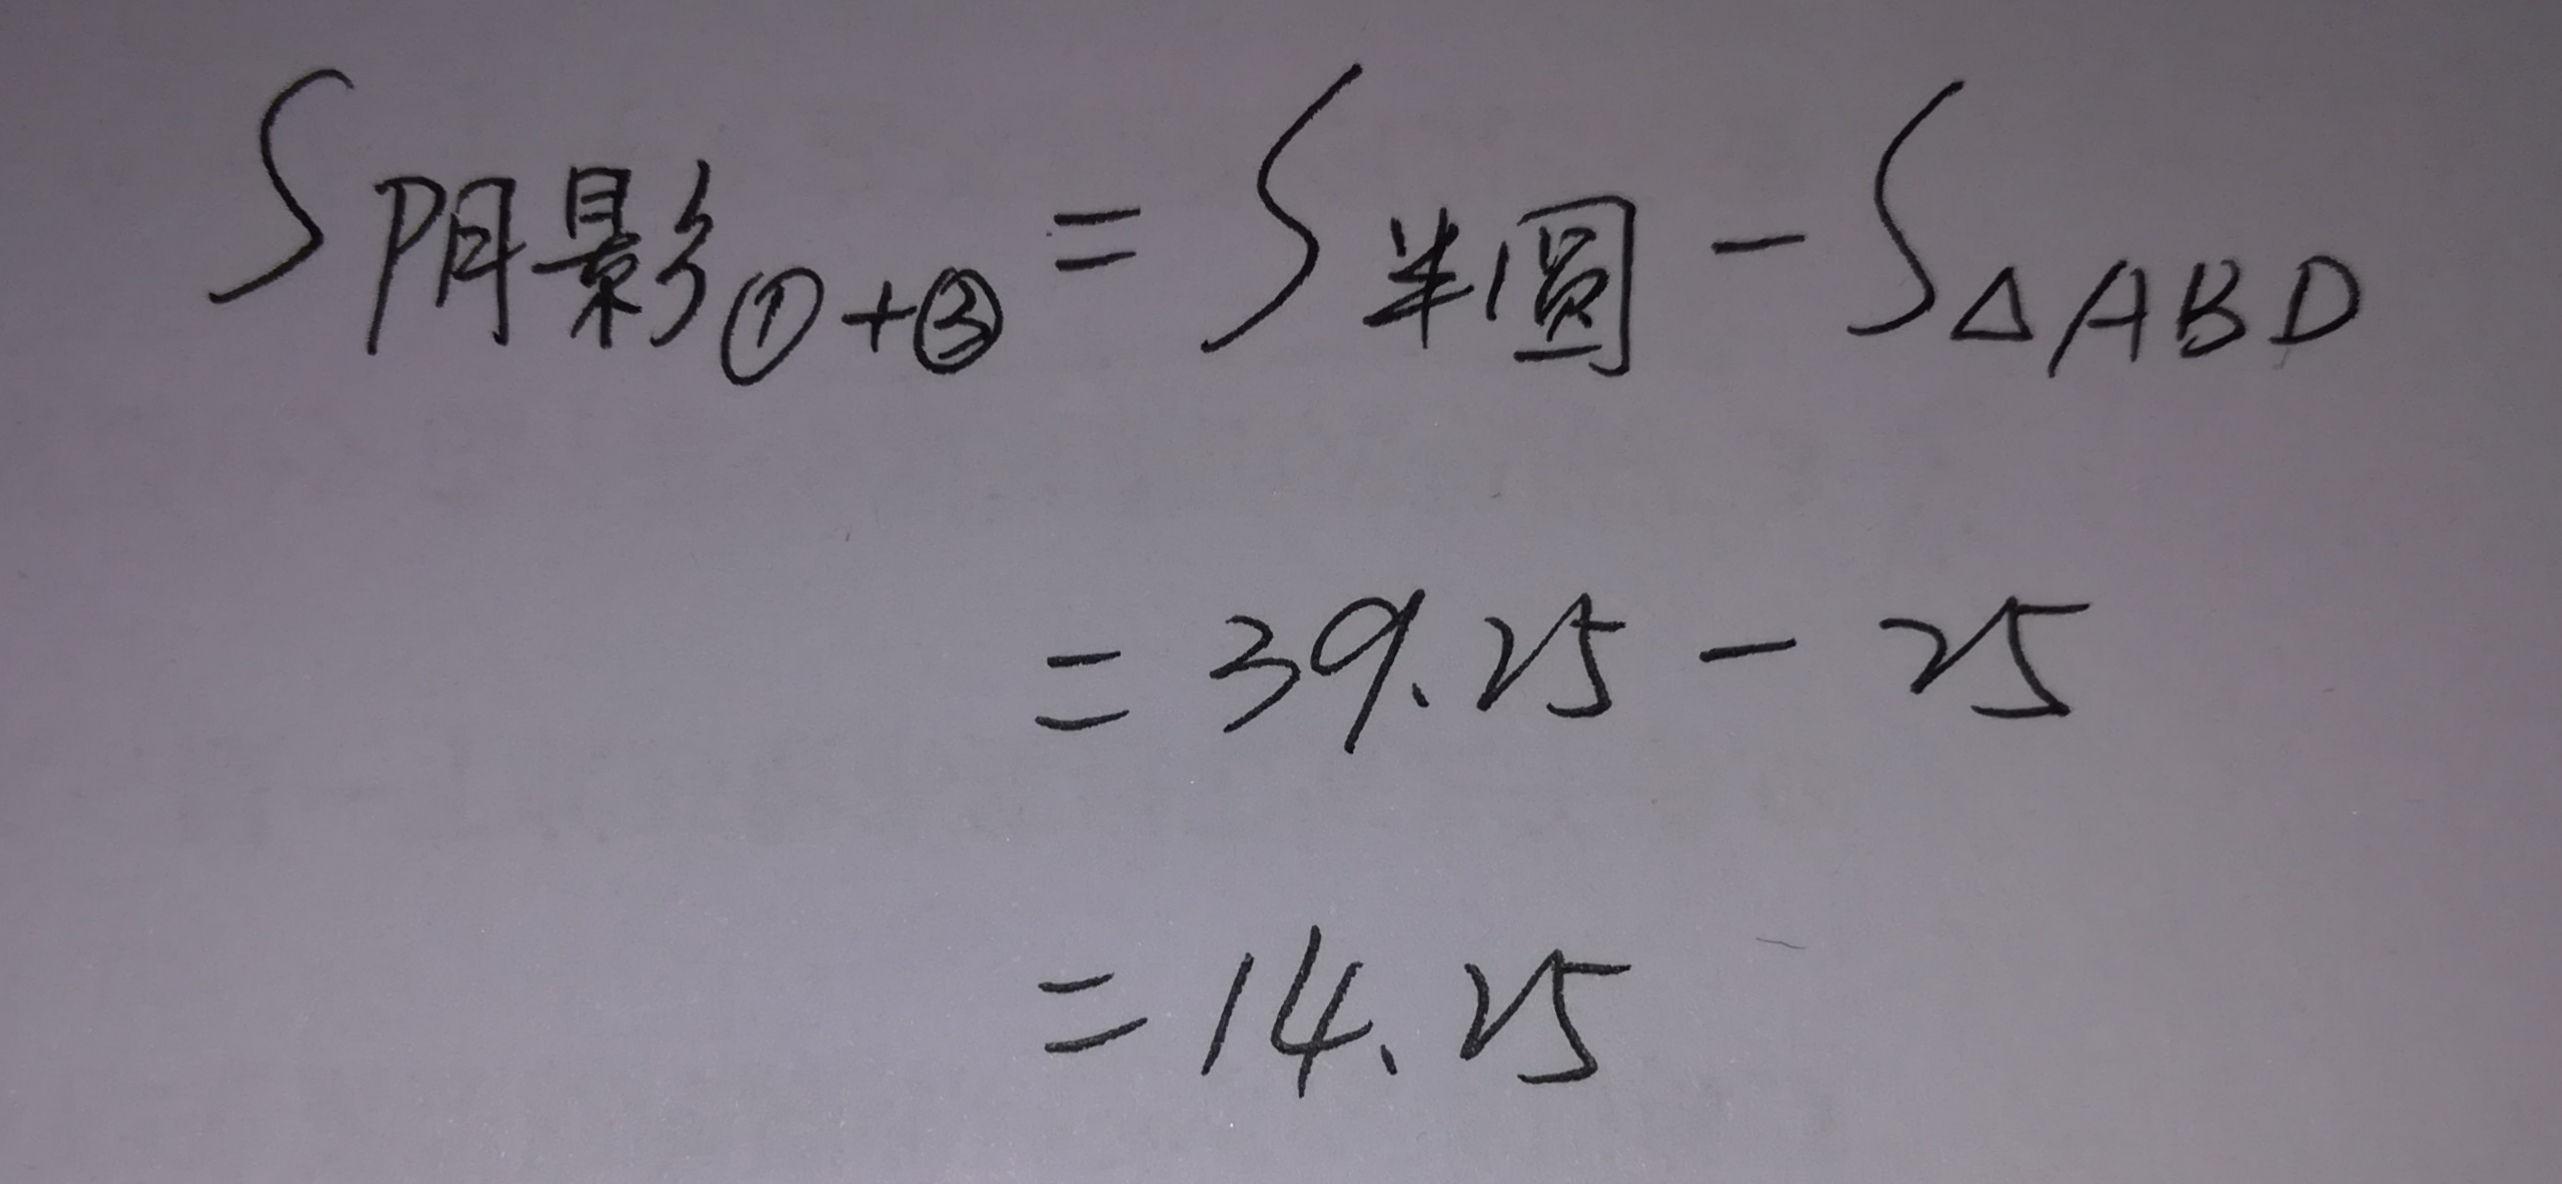 S阴影①+③=S半圆-S△ABD
=39.25-25
=14.25